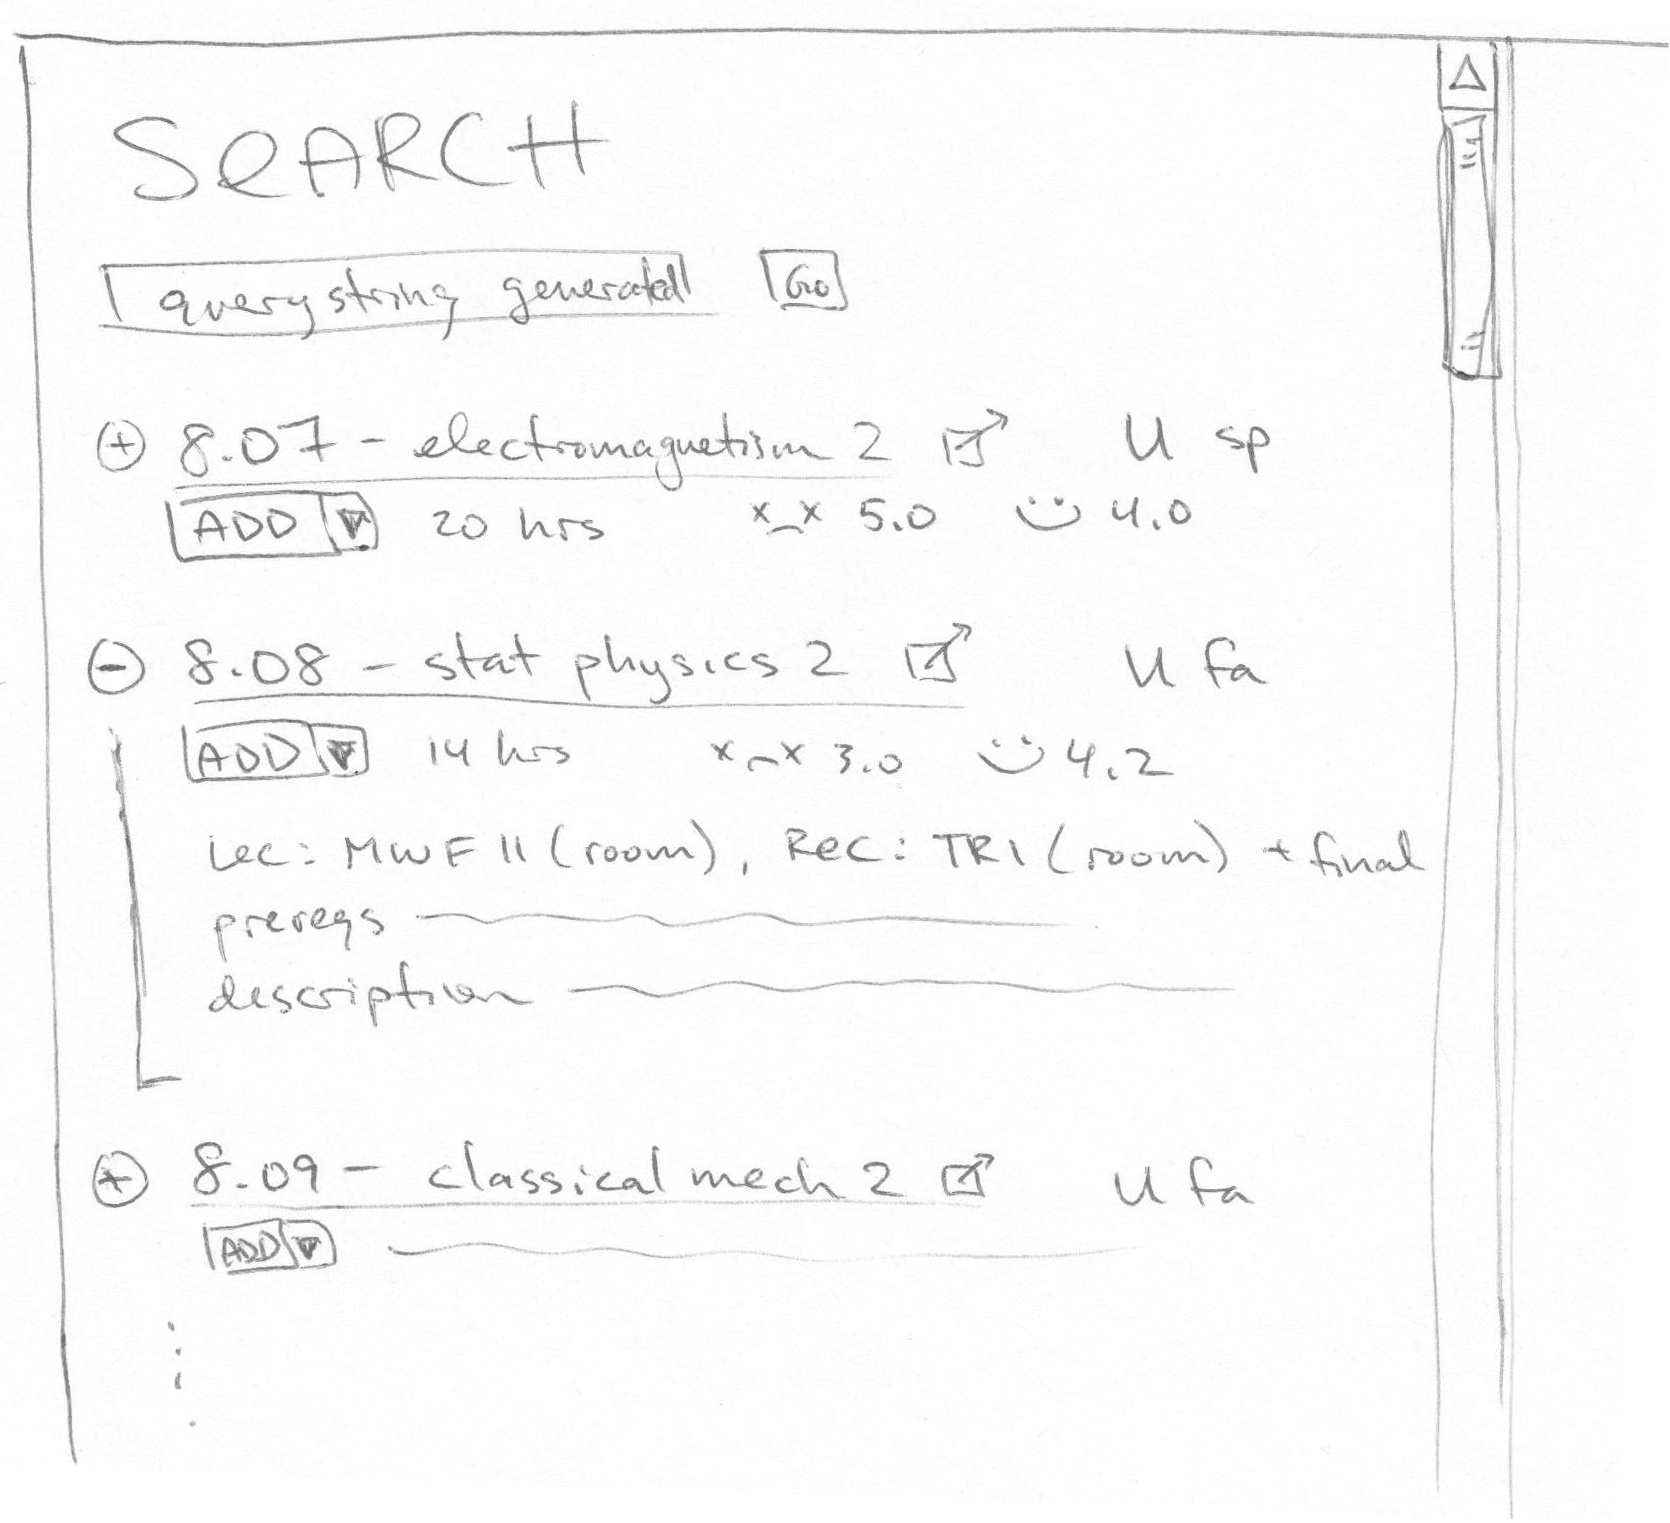 SEARCH
query string generated Go
8.07 - electromagnetism 2 U sp
ADD 20 hrs x_x 5.0 4.0
8.08 - stat physics 2 U fa
ADD 14 hrs x_x 3.0 4.2
Lec: MWF 11 (room), Rec: TR1 (room) + final
prereqs
description
8.09 - classical mech 2 U fa
ADD